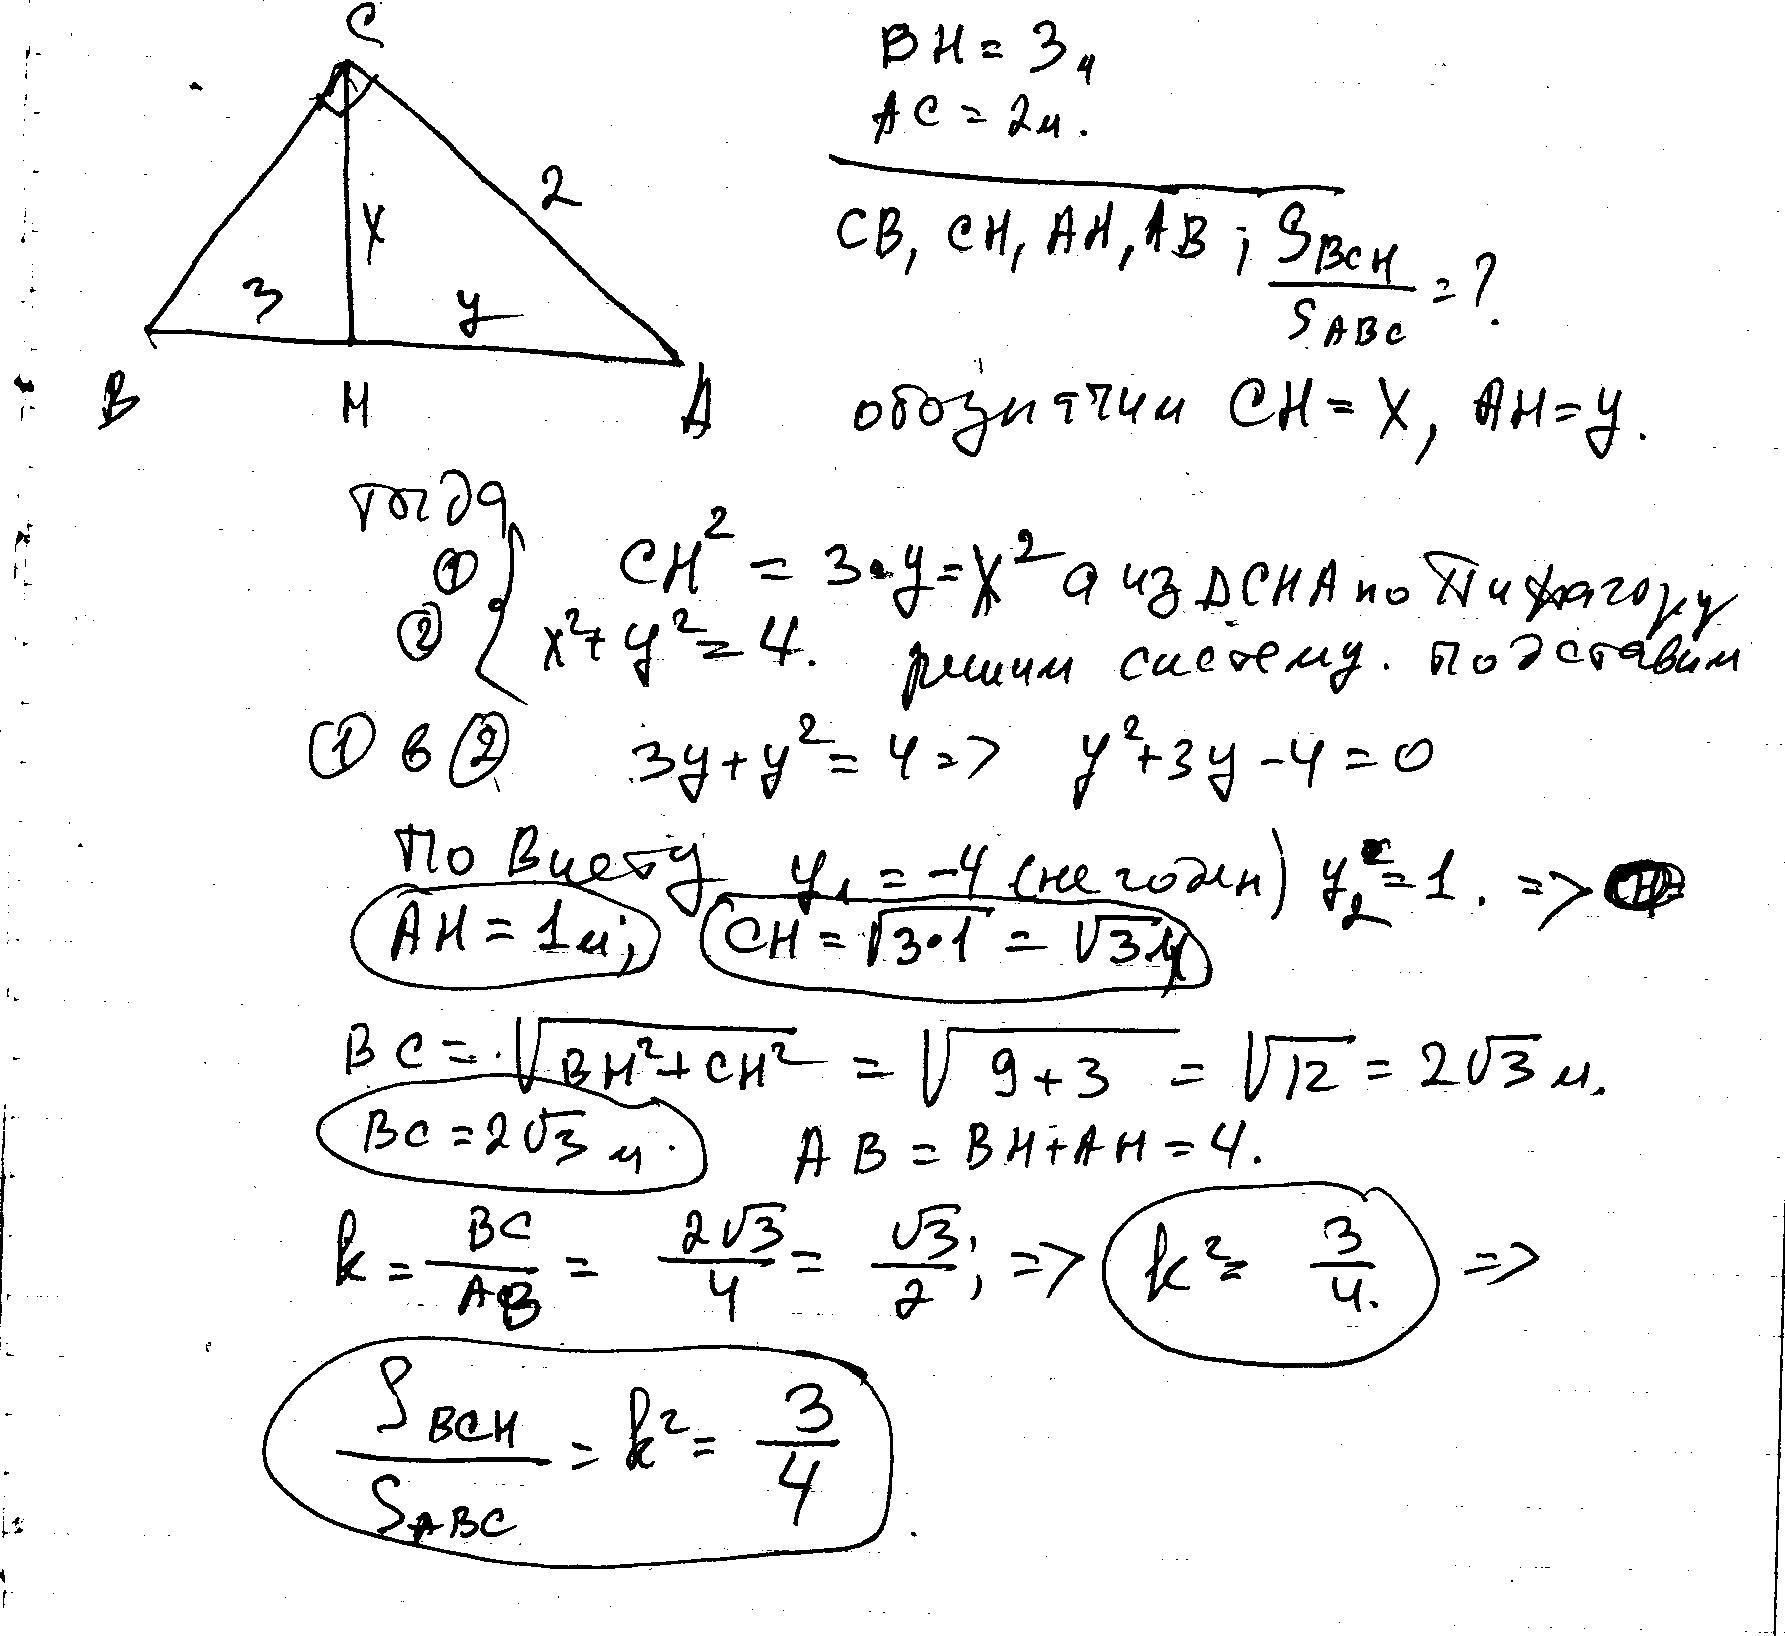 C
BH = 3м
AC = 2м.
2
x
CB, CH, AH, AB ; S_BCH / S_ABC = ?
3
y
B H A
обозначим CH = x, AH = y.
тогда
① CH² = 3·y = x² а из ΔCHA по Пифагору
② x² + y² = 4. решим систему. подставим
① в ② 3y + y² = 4 => y² + 3y - 4 = 0
По Виету y₁ = -4 (не годен) y₂ = 1. =>
AH = 1м; CH = √3·1 = √3 м
BC = √BH² + CH² = √9 + 3 = √12 = 2√3 м.
BC = 2√3 м. AB = BH + AH = 4.
k = BC / AB = 2√3 / 4 = √3 / 2 ; => k² = 3 / 4. =>
S_BCH / S_ABC = k² = 3 / 4